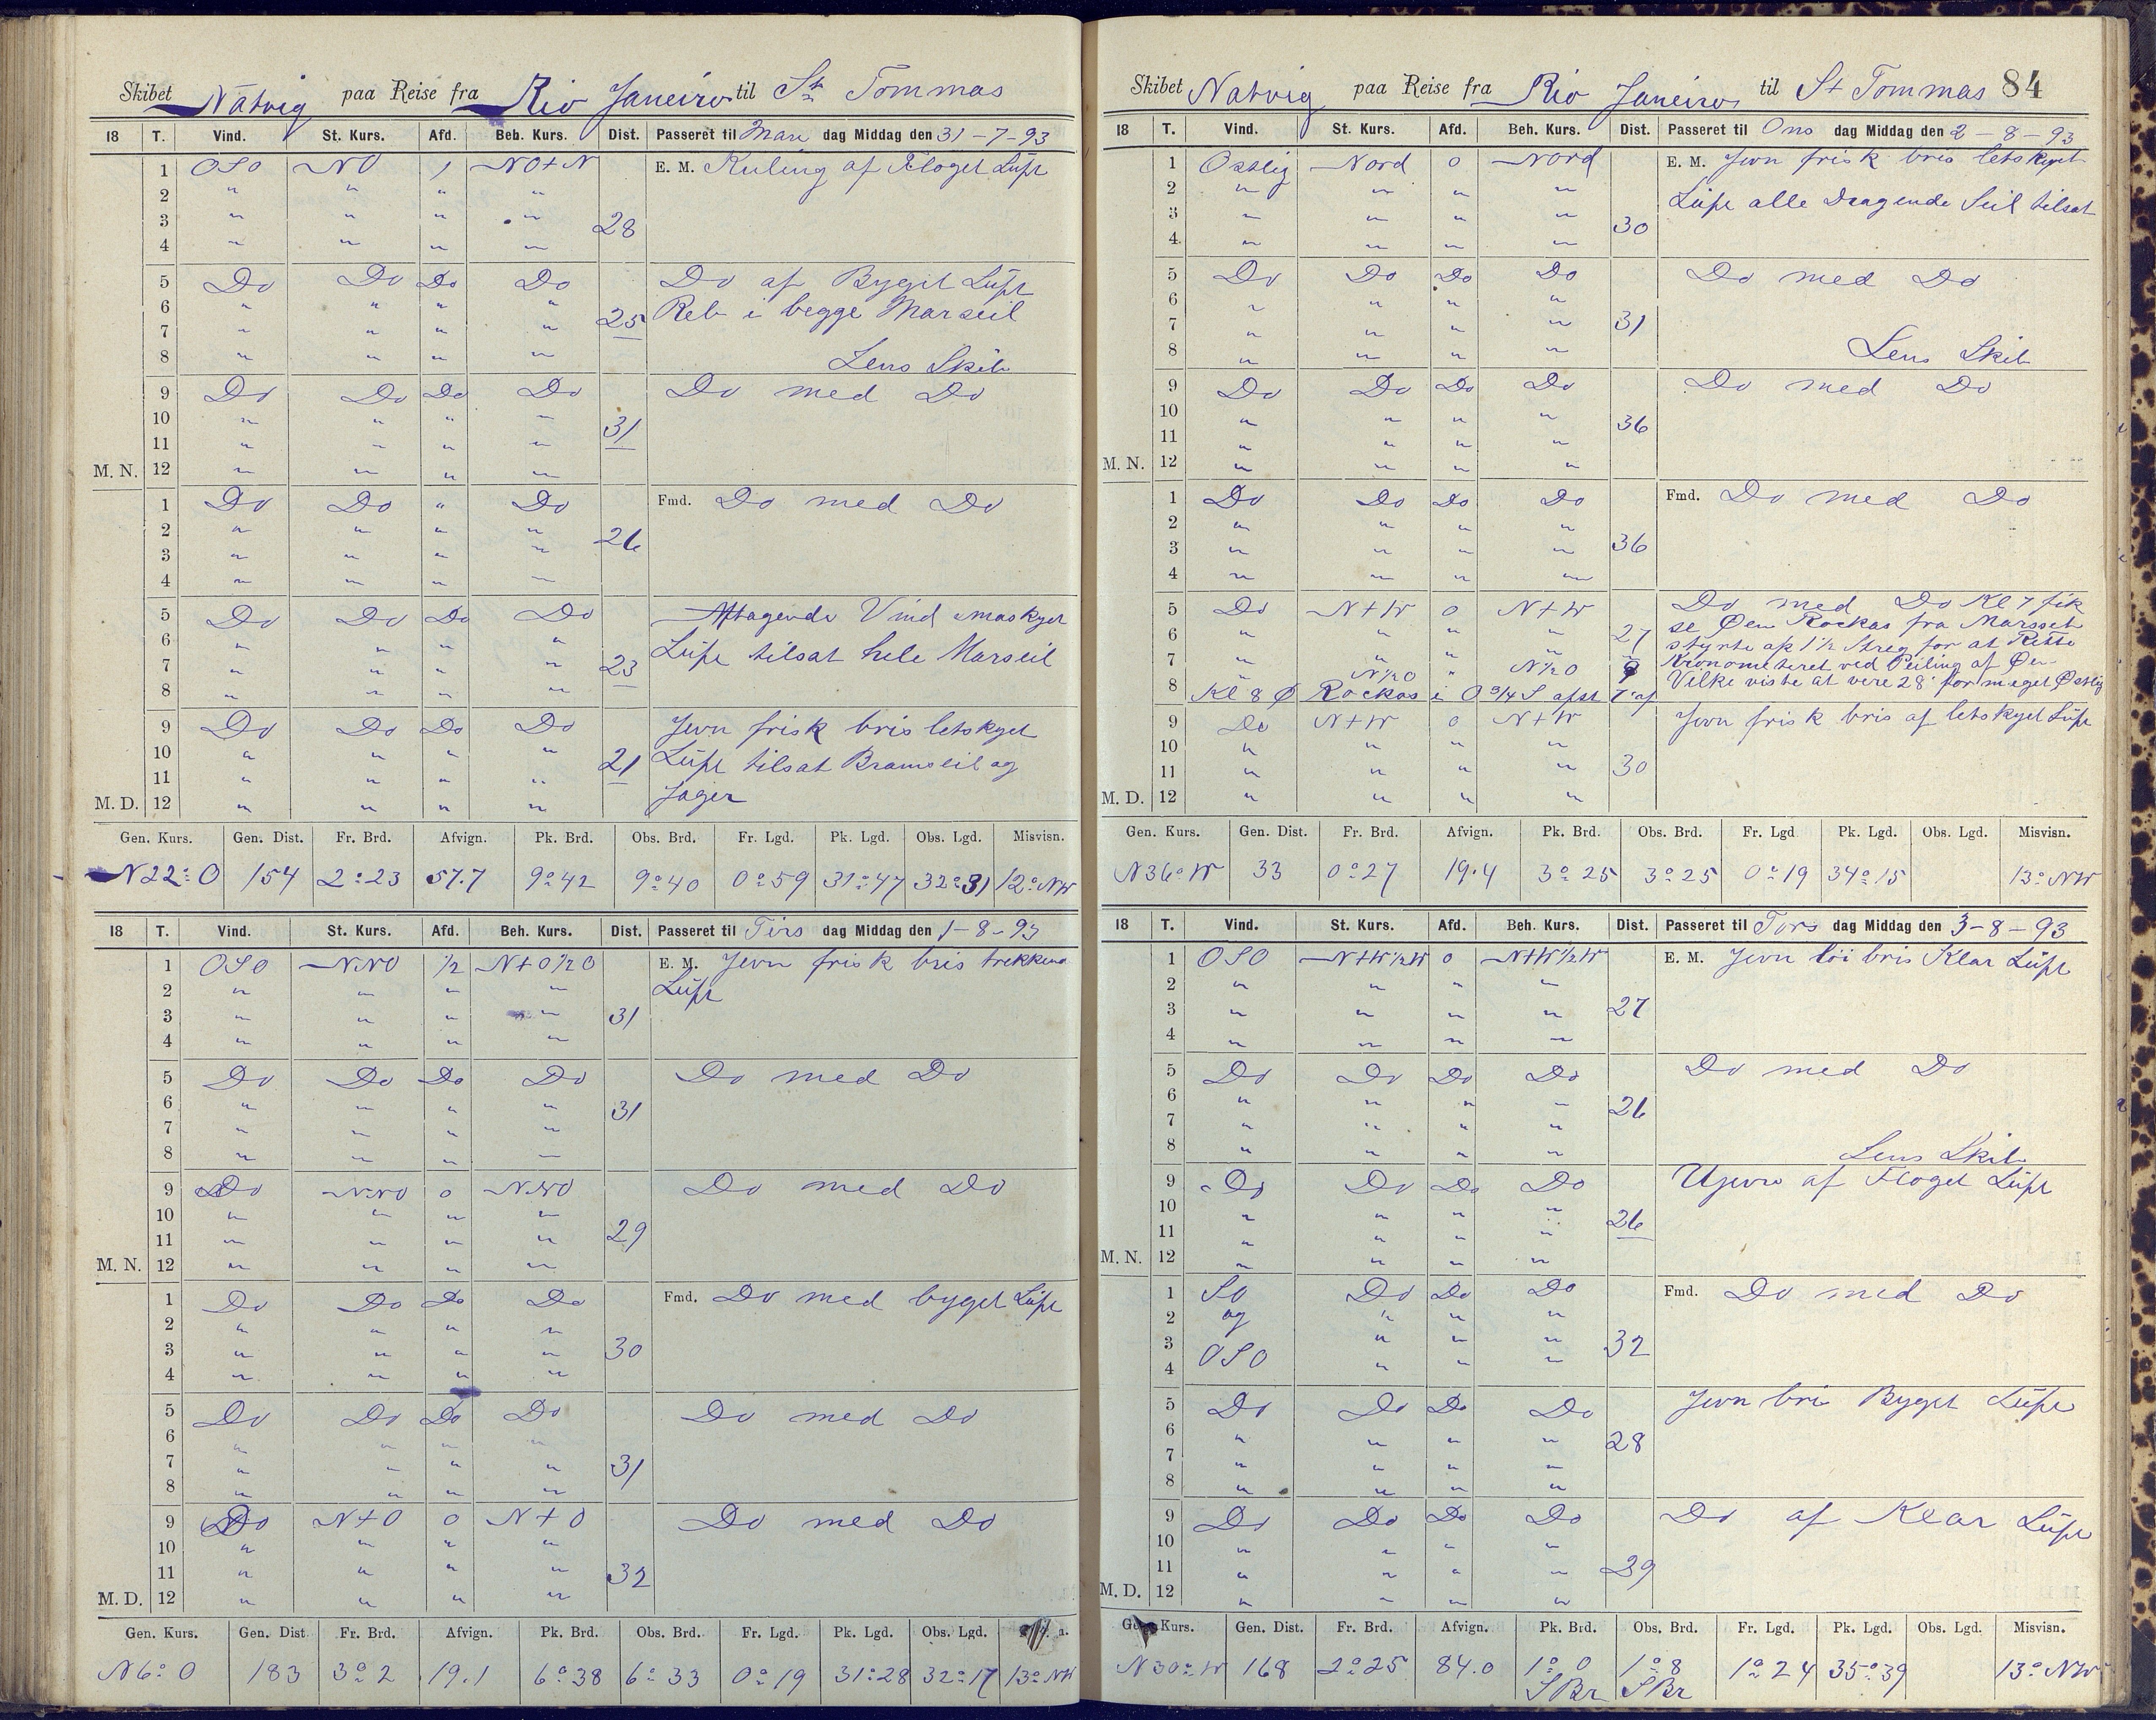 Skibet Natvig paa Reise fra Rio Janeiro til St Tommas
18 T. Vind. St. Kurs. Afd. Beh. Kurs. Dist. Passeret til Man dag Middag den 31-7-93
1 OSO NO 1 NO+N E. M. Kuling af Floget Lüft
2 " " " "
3 " " " " 28
4 " " " "
5 Do Do Do Do Do af Byget Lüft
6 " " " " Reb i begge Marseil
7 " " " " 25
8 " " " " Lens Skib
9 Do Do Do Do Do med Do
10 " " " "
11 " " " " 31
M. N. 12 " " " "
1 Do Do " Do Fmd. Do med Do
2 " " " "
3 " " " " 26
4 " " " "
5 Do Do Do Do Aftagende Vind smaskyet
6 " " " " Lüft tilsat hele Marseil
7 " " " " 23
8 " " " "
9 Do Do Do Do Jevn frisk bris letskyet
10 " " " " 21 Lüft tilsat Bramseil og
11 " " " " Jager
M. D. 12 " " " "
Gen. Kurs. Gen. Dist. Fr. Brd. Afvign. Pk. Brd. Obs. Brd. Fr. Lgd. Pk. Lgd. Obs. Lgd. Misvisn.
N22°O 154 2°23 57.7 9°42 9°40 0°59 31°47 32°31 12°NW
18 T. Vind. St. Kurs. Afd. Beh. Kurs. Dist. Passeret til Tirs dag Middag den 1-8-93
1 OSO NNO 1/2 N+O1/2O E. M. Jevn frisk bris trekkend
2 " " " " Lüft
3 " " " " 31
4 " " " "
5 Do Do Do Do Do med Do
6 " " " " 31
7 " " " "
8 " " " "
9 Do NNO 0 NNO Do med Do
10 " " " "
11 " " " " 29
M. N. 12 " " " "
1 Do Do Do Do Fmd. Do med byget Lüft
2 " " " "
3 " " " " 30
4 " " " "
5 Do Do Do Do Do med Do
6 " " " "
7 " " " " 31
8 " " " "
9 Do N+O 0 N+O Do med Do
10 " " " "
11 " " " " 32
M. D. 12 " " " "
Gen. Kurs. Gen. Dist Fr. Brd. Afvign. Pk. Brd. Obs. Brd. Fr. Lgd. Pk. Lgd. Obs. Lgd.
N6°O 183 3°2 19.1 6°38 6°33 0°19 31°28 32°17 13°NW
Skibet Natvig paa Reise fra Rio Janeiro til St Tommas 84
18 T. Vind. St. Kurs. Afd. Beh. Kurs. Dist. Passeret til Ons dag Middag den 2-8-93
1 Ostlig Nord 0 Nord E. M. Jevn frisk bris letskyet
2 " " " " Lüft alle Dragende Seil tilsat
3 " " " " 30
4 " " " "
5 Do Do Do Do Do med Do
6 " " " "
7 " " " " 31
8 " " " " Lens Skib
9 Do Do Do Do Do med Do
10 " " " " 36
11 " " " "
M. N. 12 " " " "
1 Do Do Do Do Fmd. Do med Do
2 " " " "
3 " " " " 36
4 " " " "
5 Do N+W 0 N+W Do med Do Kl 7 fik
6 " " " " 27 se Øen Rockas fra Marsset
styrte af 1 1/2 Streg for at Rette
7 " N1/2O " N1/2O Kronometeret ved Peiling af Øen
8 Kl 8 Ø Rockas i O 3/4 S afst 7' af Vilke viste at vere 28' for meget Østlig
9 Do N+W 0 N+W Jevn frisk bris af letskyet Lüft
10 " " " "
11 " " " " 30
M. D. 12 " " " "
Gen. Kurs. Gen. Dist. Fr. Brd. Afvign. Pk. Brd. Obs. Brd. Fr. Lgd Pk. Lgd. Obs. Lgd. Misvisn.
N36°W 33 0°27 19.4 3°25 3°25 0°19 34°15 13°NW
18 T. Vind. St. Kurs. Afd. Beh. Kurs. Dist. Passeret til Tors dag Middag den 3-8-93
1 OSO N+W1/2W 0 N+W1/2W E. M. Jevn löi bris Klar Lüft
2 " " " "
3 " " " " 27
4 " " " "
5 Do Do Do Do Do med Do
6 " " " " 26
7 " " " "
8 " " " " Lens Skib
9 Do Do Do Do Ujevn af Floget Lüft
10 " " " "
11 " " " " 26
M. N. 12 " " " "
1 SO Do Do Do Fmd. Do med Do
2 og " " "
3 " " " 32
4 OSO " " "
5 Do Do Do Do Jevn bris Bygget Lüft
6 " " " " 28
7 " " " "
8 " " " "
9 Do Do Do Do Do af Klar Lüft
10 " " " "
11 " " " " 29
M. D. 12 " " " "
Kurs. Gen. Dist. Fr. Brd. Afvign. Pk. Brd. Obs. Brd. Fr. Lgd. Pk. Lgd. Obs. Lgd. Misvisn.
N30°W 168 2°25 84.0 1°0 1°8 1°24 35°39 13°NW
SBr SBr